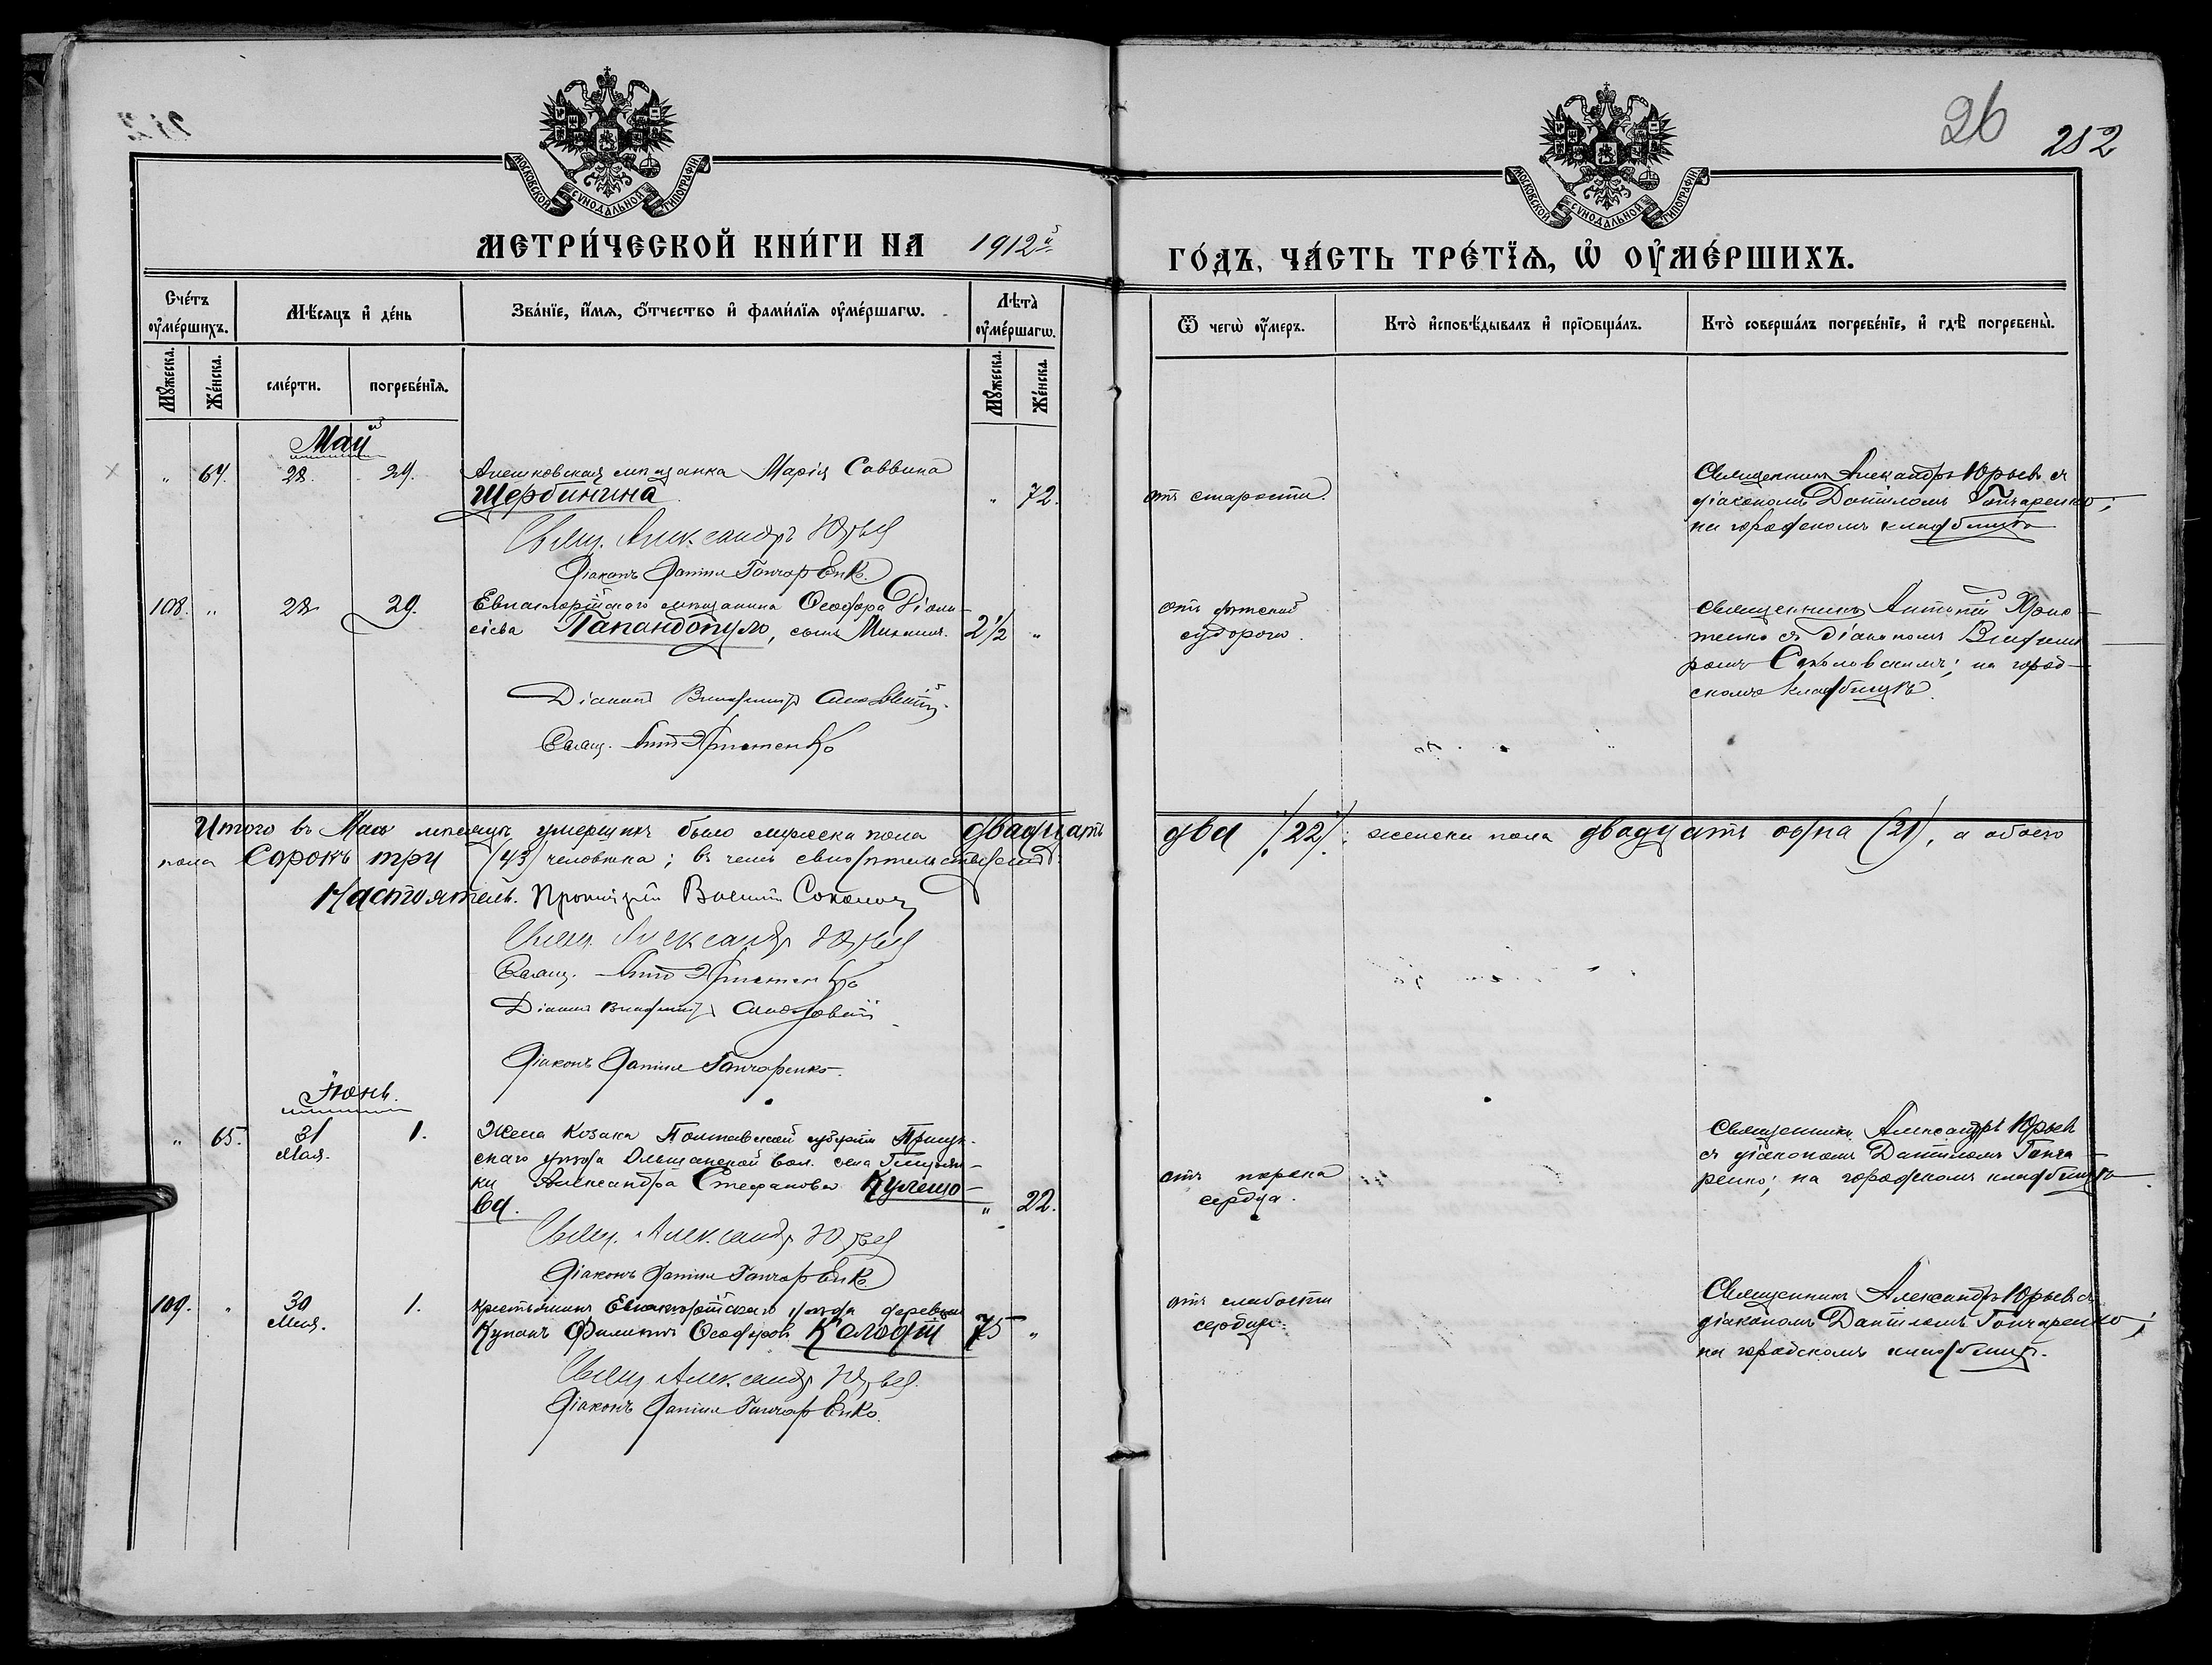 26 252
МОСКОВСКОЙ СѴНОДАЛЬНОЙ ТИПОГРАФІИ
МОСКОВСКОЙ СѴНОДАЛЬНОЙ ТИПОГРАФІИ
МЕТРИ́ЧЕСКОЙ КНИ́ГИ НА 1912й
ГО́ДЪ, ЧА́СТЬ ТРЕ́ТЇѦ, Ѡ҆ ОУ҆МЕ́РШИХЪ.
Сче́тъ оу҆ме́ршихъ.
Мѣ́сяцъ и҆ де́нь
Зва́нїе, и҆́мѧ, ѻ҆́тчество и҆ фами́лїѧ оу҆ме́ршагѡ.
Лѣта̀ оу҆ме́ршагѡ.
Му́жеска. Же́нска. сме́рти. погребе́нїѧ. Му́жеска. Же́нска.
Ѿ чегѡ̀ оу҆́меръ.
Кто̀ и҆сповѣ́дывалъ и҆ прїѻбща́лъ.
Кто̀ соверша́лъ погребе́нїе, и҆ гдѣ̀ погребены̀.
Май
" 64. 28. 29. Алешковская мѣщанка Марія Саввина
Щербинина " 72.
Свящ. Александръ Юрьев
Діаконъ Даніил Гончаренко
отъ старости.
Священникъ Александръ Юрьевъ съ
діакономъ Даніиломъ Гончаренко;
на городскомъ кладбищѣ
108. " 28 29. Евпаторійского мѣщанина Ѳеодора Діони-
сіева Папандопуло, сынъ Михаилъ. 2½ "
Діаконъ Владиміръ
Свящ. Ант Христенко
отъ дѣтской
судороги.
Священникъ Антоній Хрис-
тенко съ діакономъ Владими-
ромъ Соколовскимъ; на город-
скомъ кладбищѣ.
Итого въ Маѣ мѣсяцѣ умершихъ было мужеска пола двадцать
два (22); женска пола двадцать одна (21), а обоего
пола Сорокъ три (43) человѣка; въ чемъ свидѣтельствуемъ:
Настоятель. Протоіерей Сокол
Свящ. Александръ Юрьев
Свящ. Ант Христенко
Діаконъ Владиміръ
Діаконъ Даніил Гончаренко.
Іюнь.
" 65. 31 Мая. 1. Жена козака Полтавской губерніи Прилук-
скаго уѣзда Ольшанской вол. села
ки Александра Стефанова Кулешо-
ва. " 22.
Свящ. Александръ Юрьев
Діаконъ Даніил Гончаренко
отъ порока
сердца.
Священникъ Александръ Юрьевъ
съ діакономъ Даніиломъ Гонча-
ренко; на городскомъ кладбищѣ.
109. " 30 Мая. 1. Крестьянинъ Евпаторійскаго уѣзда деревни
Ѳеодоровъ 75 "
Свящ. Александръ Юрьев.
Діаконъ Даніил Гончаренко.
отъ слабости
сердца.
Священникъ Александръ Юрьевъ съ
діакономъ Даніиломъ Гончаренко;
на городскомъ кладбищѣ.